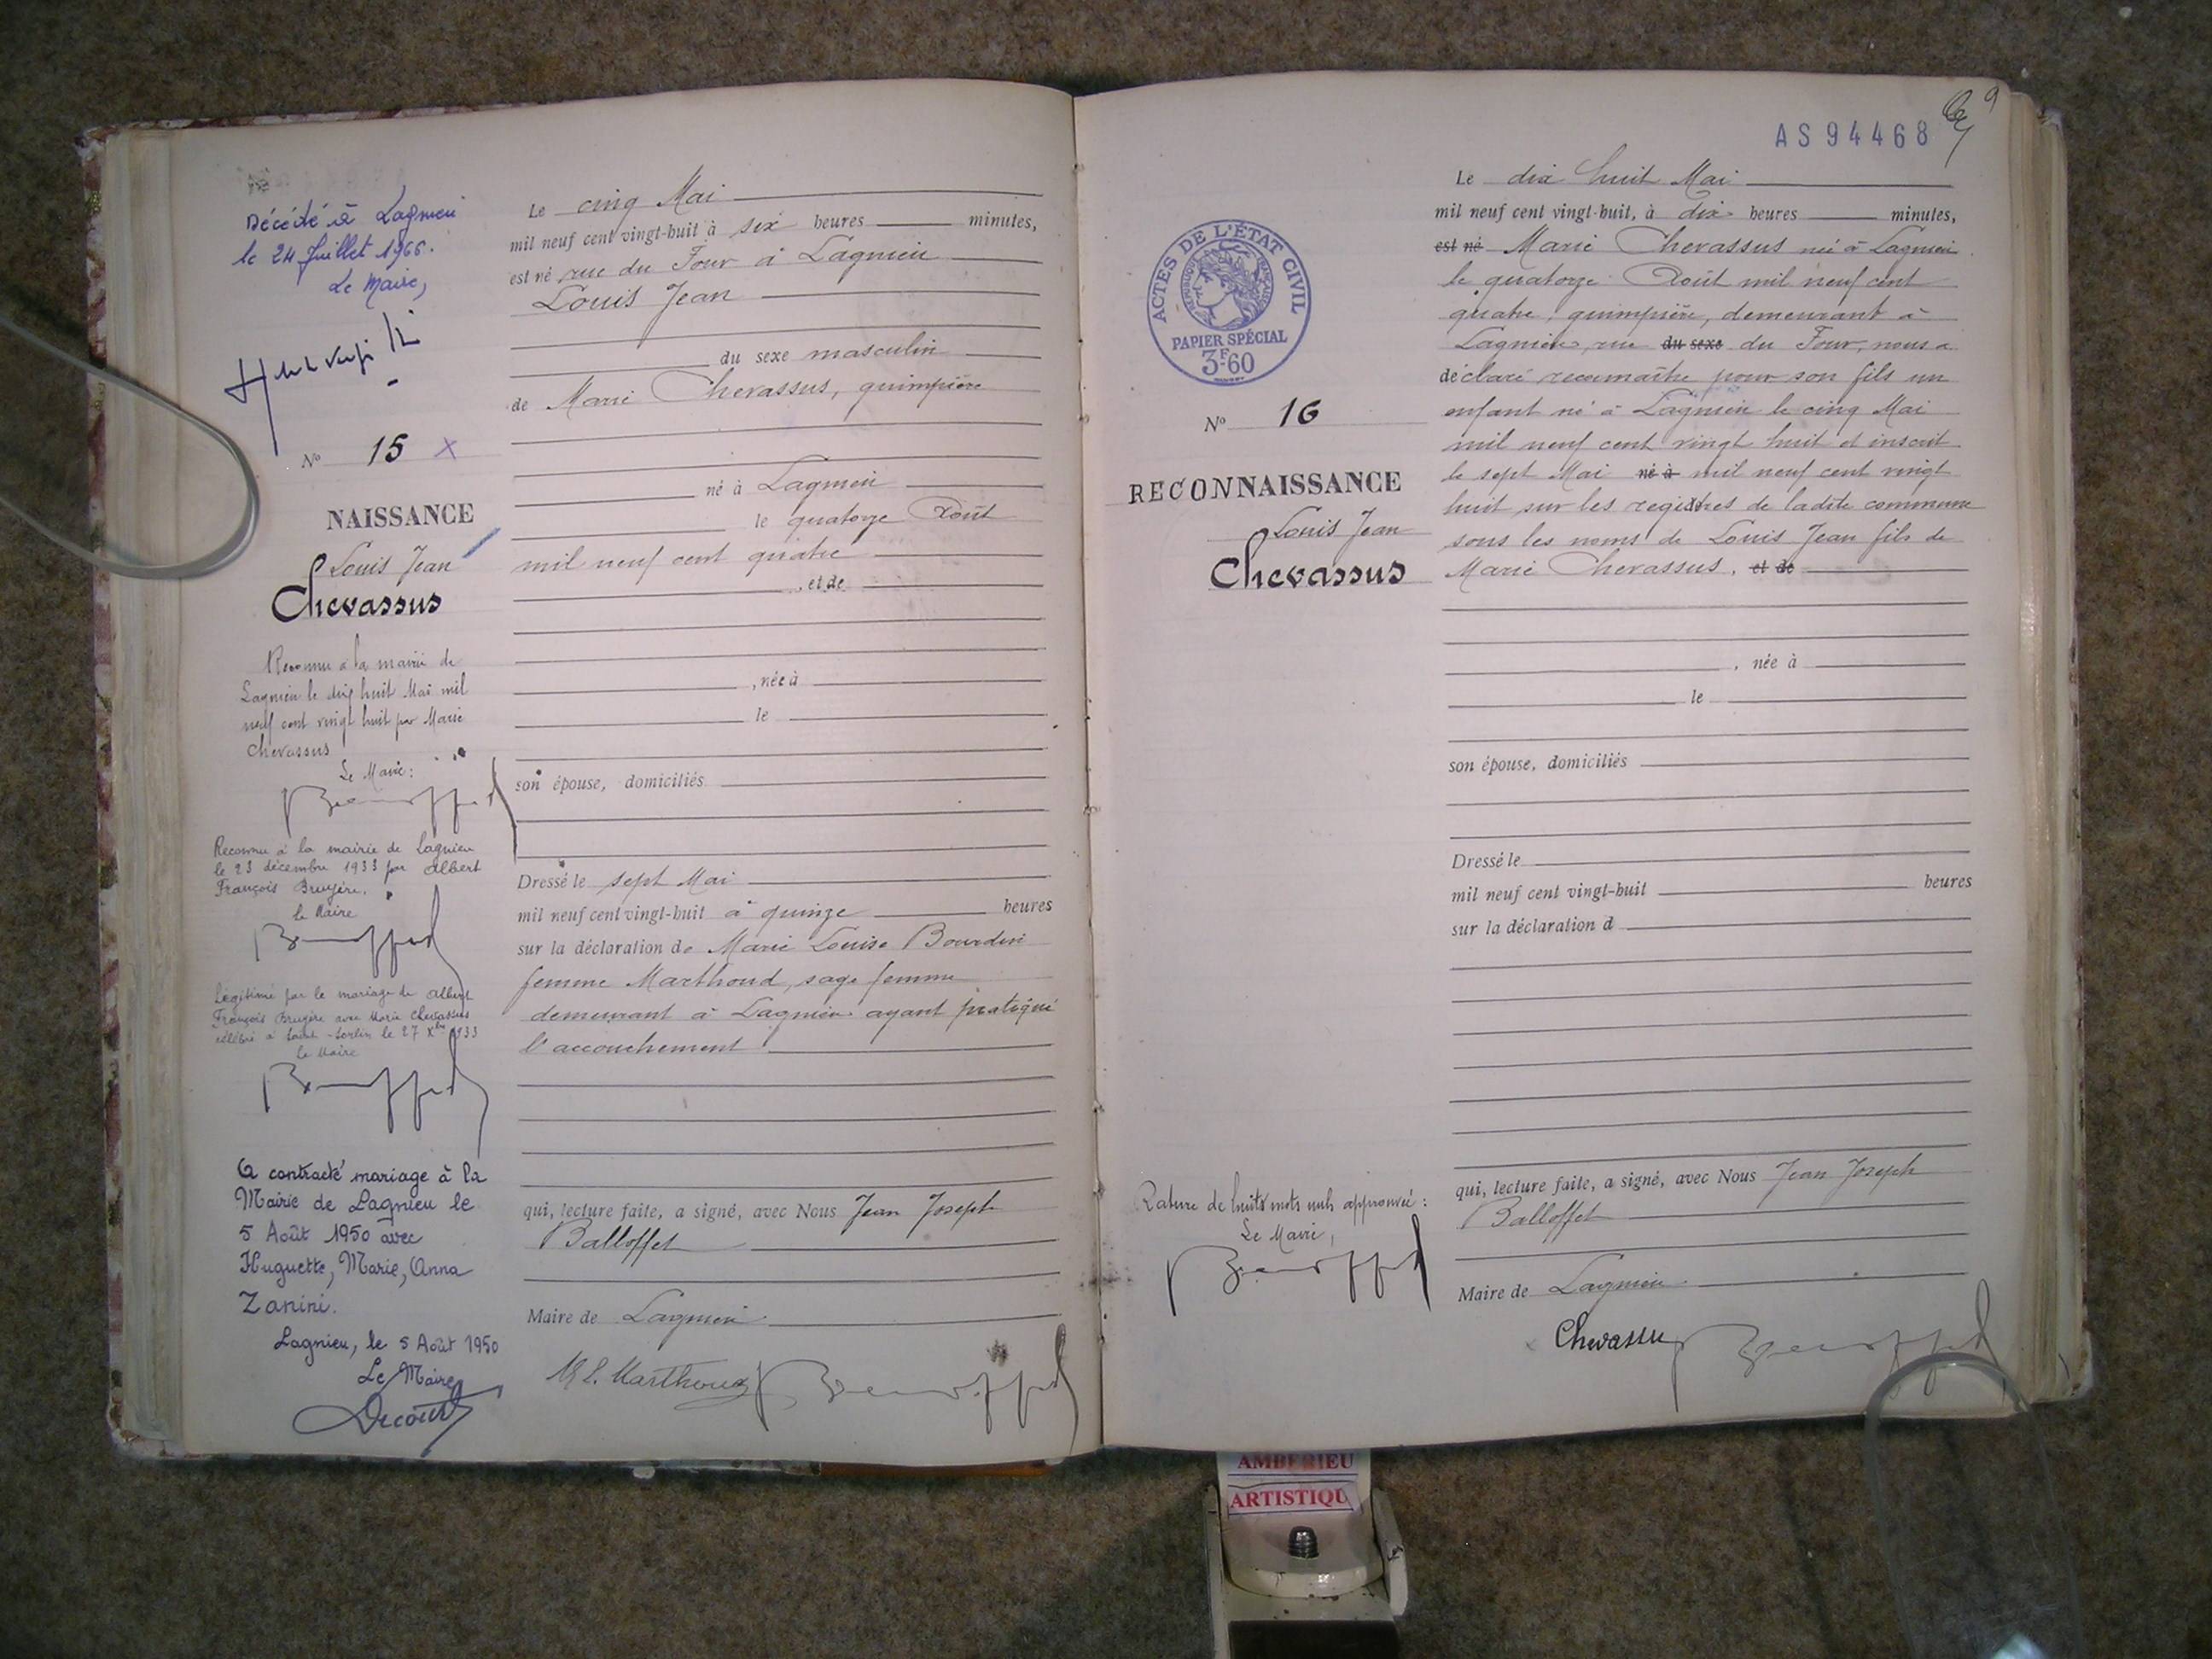 Décédé à Lagnieu
le 24 Juillet 1966.
Le Maire,
N° 15 X
NAISSANCE
Louis Jean
Chevassus
Reconnu à la mairie de
Lagnieu le dix huit Mai mil
neuf cent vingt huit par Marie
Chevassus
Le Maire :
Reconnu à la mairie de Lagnieu
le 23 décembre 1933 par Albert
François Bruyère.
le Maire
Légitimé par le mariage de Albert
François Bruyère avec Marie Chevassus
célébré à Saint-Sorlin le 27 Xbre 1933
le Maire
A contracté mariage à la
Mairie de Lagnieu le
5 Août 1950 avec
Huguette, Marie, Anna
Zanini.
Lagnieu, le 5 Août 1950
Le Maire
Decourt
Le cinq Mai
mil neuf cent vingt-huit à six heures minutes,
est né rue du Four à Lagnieu
Louis Jean
du sexe masculin
de Marie Chevassus, guimpière
né à Lagnieu
le quatorze Août
mil neuf cent quatre
, et de
, née à
le
son épouse, domiciliés
Dressé le sept Mai
mil neuf cent vingt-huit à quinze heures
sur la déclaration de Marie Louise Bourdin
femme Marthoud, sage femme
demeurant à Lagnieu ayant pratiqué
l'accouchement
qui, lecture faite, a signé, avec Nous Jean Joseph
Balloffet
Maire de Lagnieu
M L. Marthoud
AS 94468
9
ACTES DE L'ÉTAT CIVIL
RÉPUBLIQUE FRANÇAISE
PAPIER SPÉCIAL
3F60
N° 16
RECONNAISSANCE
Louis Jean
Chevassus
Rature de huits mots nuls approuvée :
Le Maire,
Le dix huit Mai
mil neuf cent vingt-huit, à dix heures minutes,
est né Marie Chevassus née à Lagnieu
le quatorze Août mil neuf cent
quatre, guimpière, demeurant à
Lagnieu, rue du sexe du Four, nous a
déclaré reconnaître pour son fils un
enfant né à Lagnieu le cinq Mai
mil neuf cent vingt huit et inscrit
le sept Mai né à mil neuf cent vingt
huit sur les registres de ladite commune
sous les noms de Louis Jean fils de
Marie Chevassus. et de
, née à
le
son épouse, domiciliés
Dressé le
mil neuf cent vingt-huit heures
sur la déclaration d
qui, lecture faite, a signé, avec Nous Jean Joseph
Balloffet
Maire de Lagnieu
Chevassus
AMBERIEU
ARTISTIQU